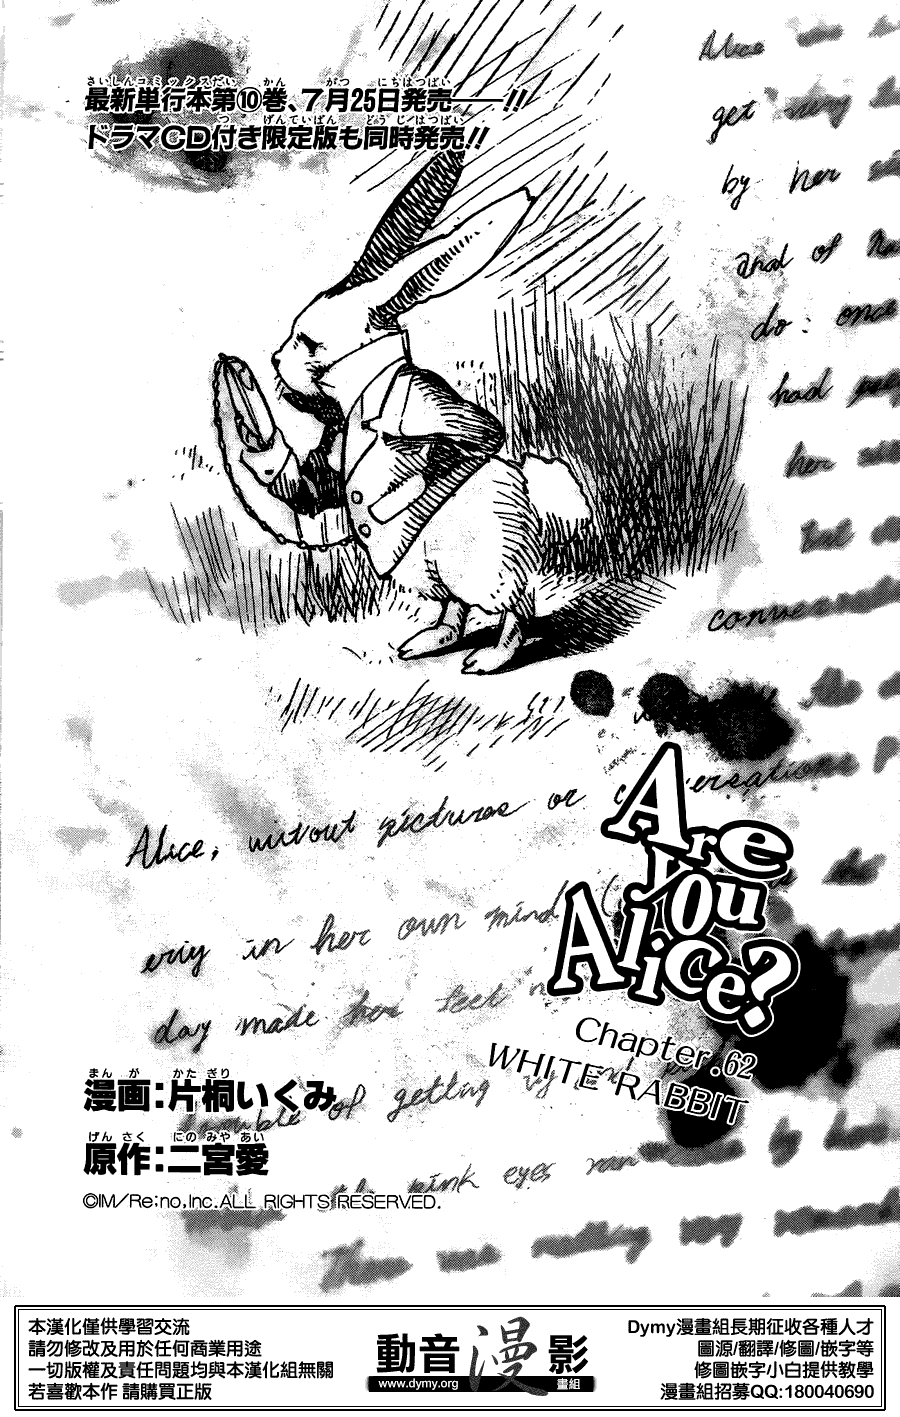 最新単行本第⑩巻、7月25日発売――!!
ドラマCD付き限定版も同時発売!!
Alice
get very
by her
and of
do: once
had
her
that
conver
Alice, witout pictures or conversations
in her own mind
day made her feet
of getting
pink eyes ran
There was nothing very
Are you Alice?
Chapter.62
WHITE RABBIT
漫画:片桐いくみ
原作:二宮愛
©IM/Re:no,inc.ALL RIGHTS RESERVED.
本漢化僅供學習交流
請勿修改及用於任何商業用途
一切版權及責任問題均與本漢化組無關
若喜歡本作 請購買正版
動音漫影
www.dymy.org
畫組
Dymy漫畫組長期征收各種人才
圖源/翻譯/修圖/嵌字等
修圖嵌字小白提供教學
漫畫組招募QQ:180040690